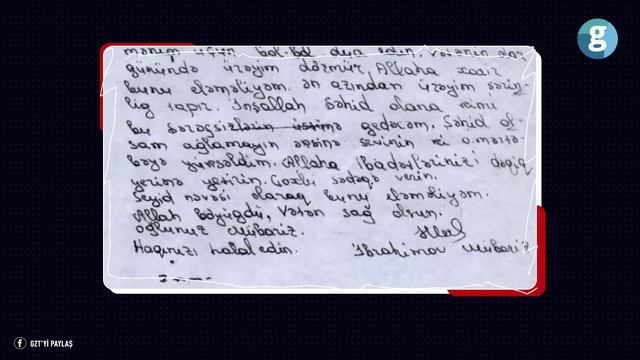 mənim üçün bol-bol dua edin. Vətənin dar
günündə ürəyim dözmür, Allaha xatir
bunu eləməliyəm. Ən azından ürəyim sərin-
lig tapır. İnşallah Şəhid olana kimi
bu şərəfsizlərin üstünə gedəcəm. Şəhid ol-
sam ağlamayın əksinə sevinin ki o mərtə-
bəyə yüksəldim. Allaha ibadətlərinizi dəqiq
yerinə yetirin. Çoxlu sədəqə verin.
Seyid nəvəsi olaraq bunu eləməliyəm.
Allah böyügdü, Vətən sağ olsun.
Oğlunuz Mübariz.
Haqınızı halal edin. İbrahimov Mübariz
g
GZT'Yİ PAYLAŞ